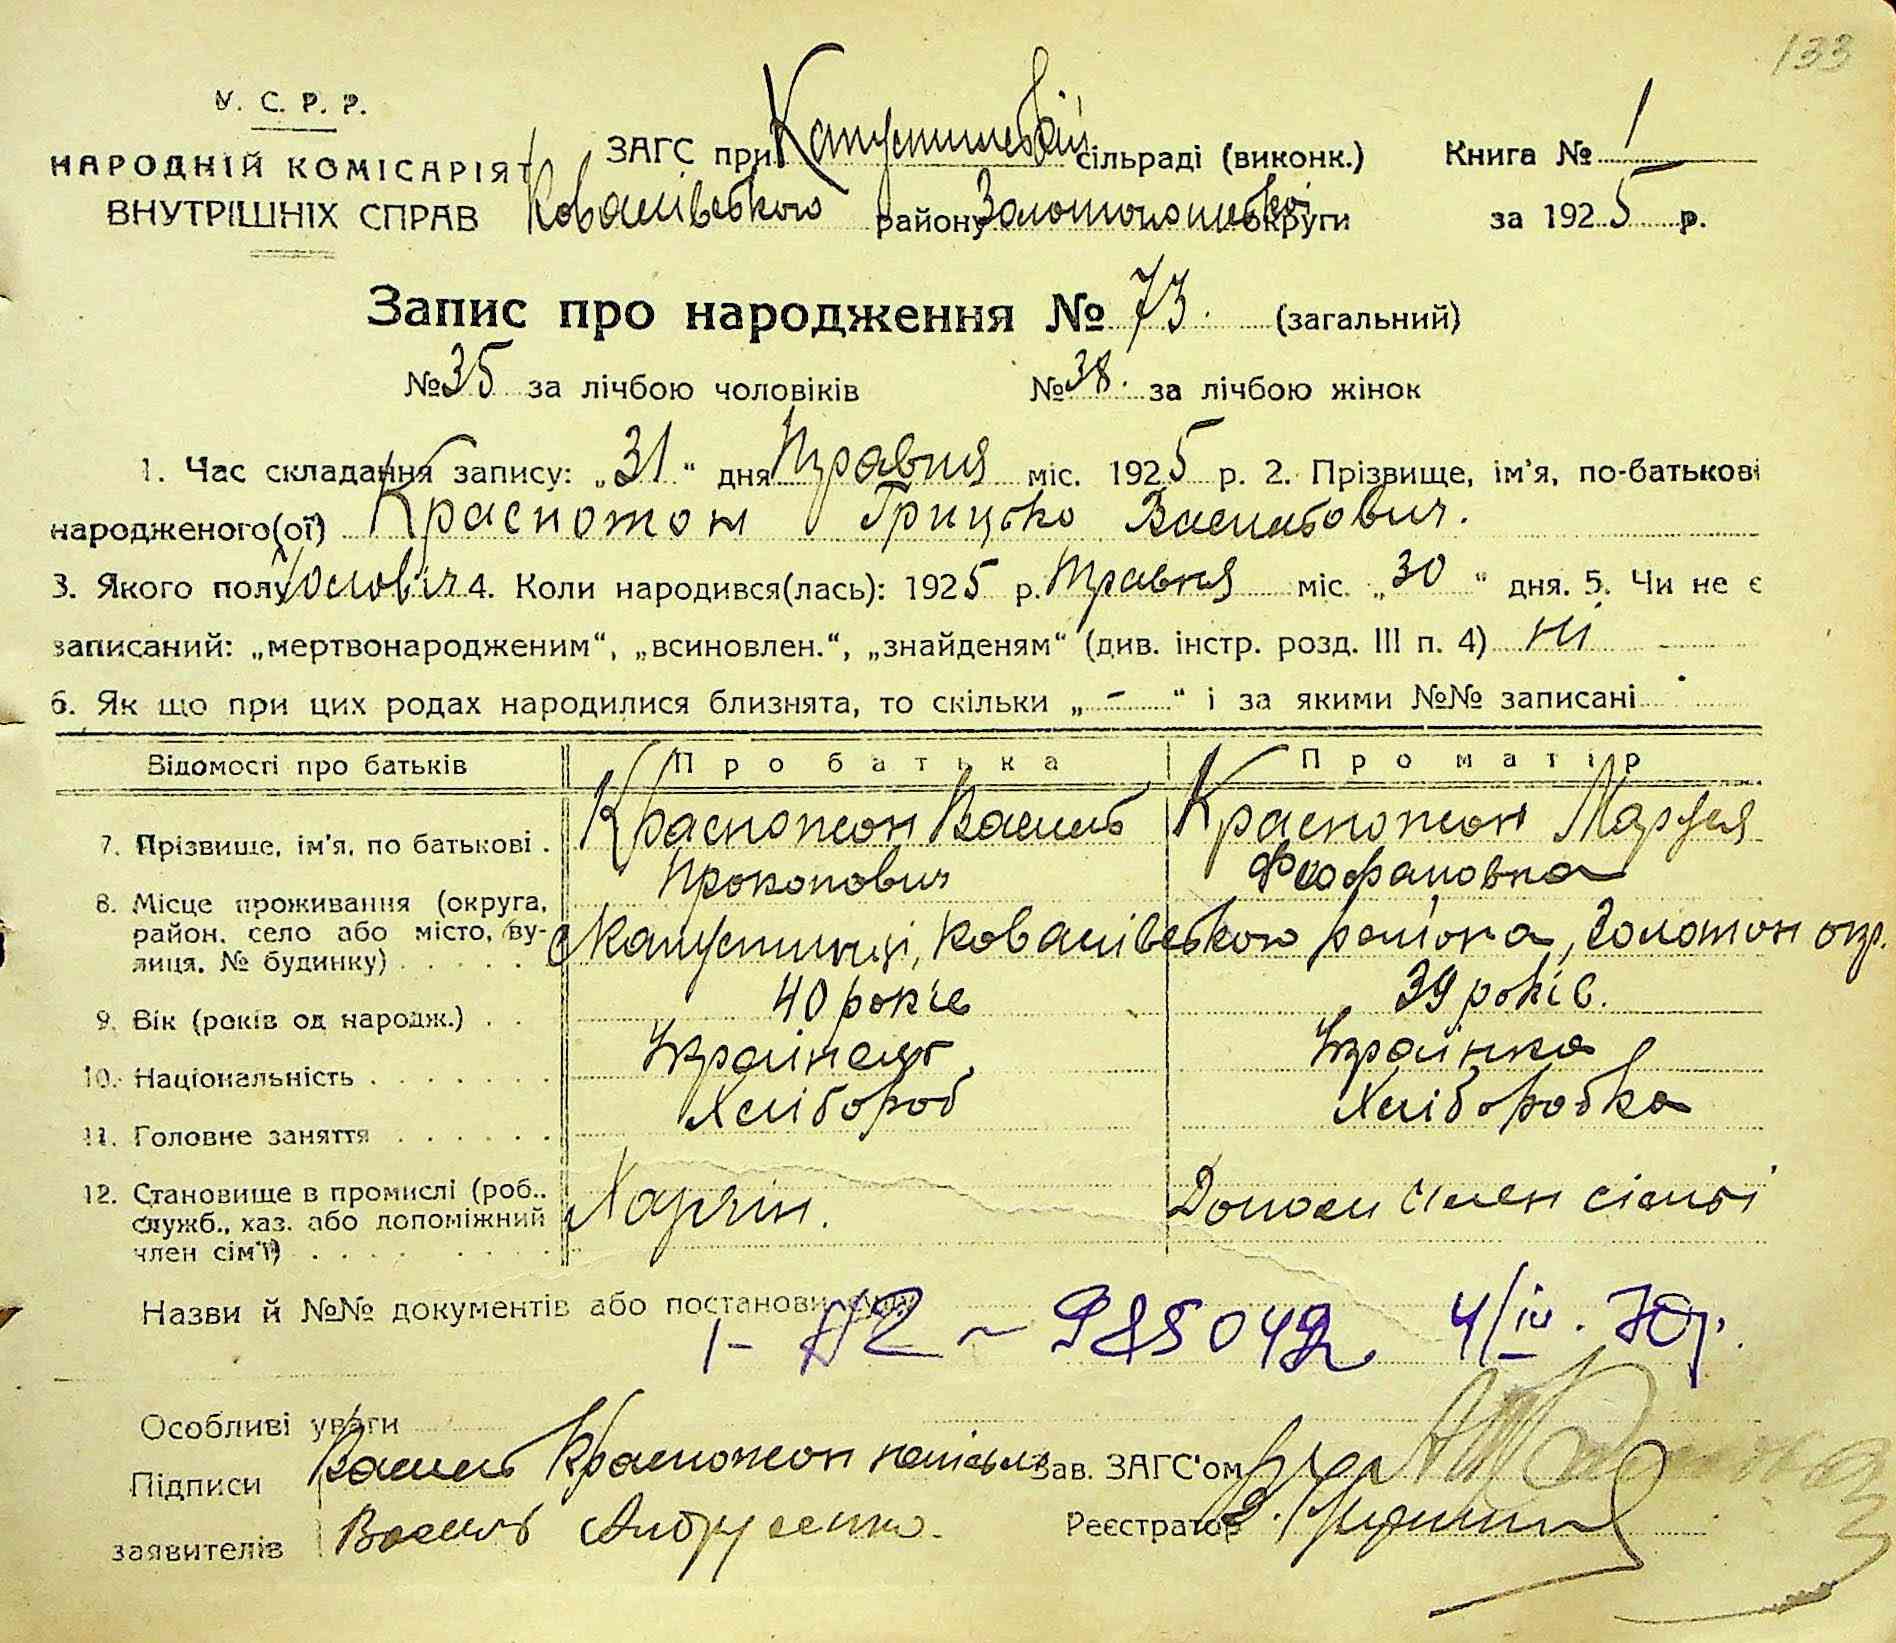 133
У. С. Р. Р.
НАРОДНІЙ КОМІСАРІЯТ
ВНУТРІШНІХ СПРАВ
ЗАГС при Капустинській сільраді (виконк.)
Ковалівського району Золотоношської округи
Книга № 1
за 1925 р.
Запис про народження № 73. (загальний)
№ 35 за лічбою чоловіків № 38. за лічбою жінок
1. Час складання запису: „31“ дня Травня міс. 1925 р. 2. Прізвище, ім'я, по-батькові
народженого(ої) Красножон Грицько Васильович.
3. Якого полу Чоловіч 4. Коли народився(лась): 1925 р. Травня міс. „30“ дня. 5. Чи не є
записаний: „мертвонародженим“, „всиновлен.“, „знайденям“ (див. інстр. розд. III п. 4) ні
6. Як що при цих родах народилися близнята, то скільки „-“ і за якими №№ записані
Відомості про батьків Про батька Про матір
7. Прізвище, ім'я, по батькові . Красножон Василь Прокопович Красножон Маруся Феофановна
8. Місце проживання (округа,
район, село або місто, ву-
лиця, № будинку) . . . . . с Капустинці, Ковалівського района, Золотон окр.
9. Вік (років од народж.) . . 40 років 39 років.
10. Національність . . . . . . . Українець Українка
11. Головне заняття . . . . . . Хлібороб Хліборобка
12. Становище в промислі (роб.,
служб., хаз. або допоміжний
член сім'ї) . . . . . . Хазяїн. Допом член сімьі
Назви й №№ документів або постанови суду
1- 985042 4/IV. 70р.
Особливі уваги
Підписи Василь Красножон Зав. ЗАГС'ом
заявителів Василь Андрусенко. Реєстратор